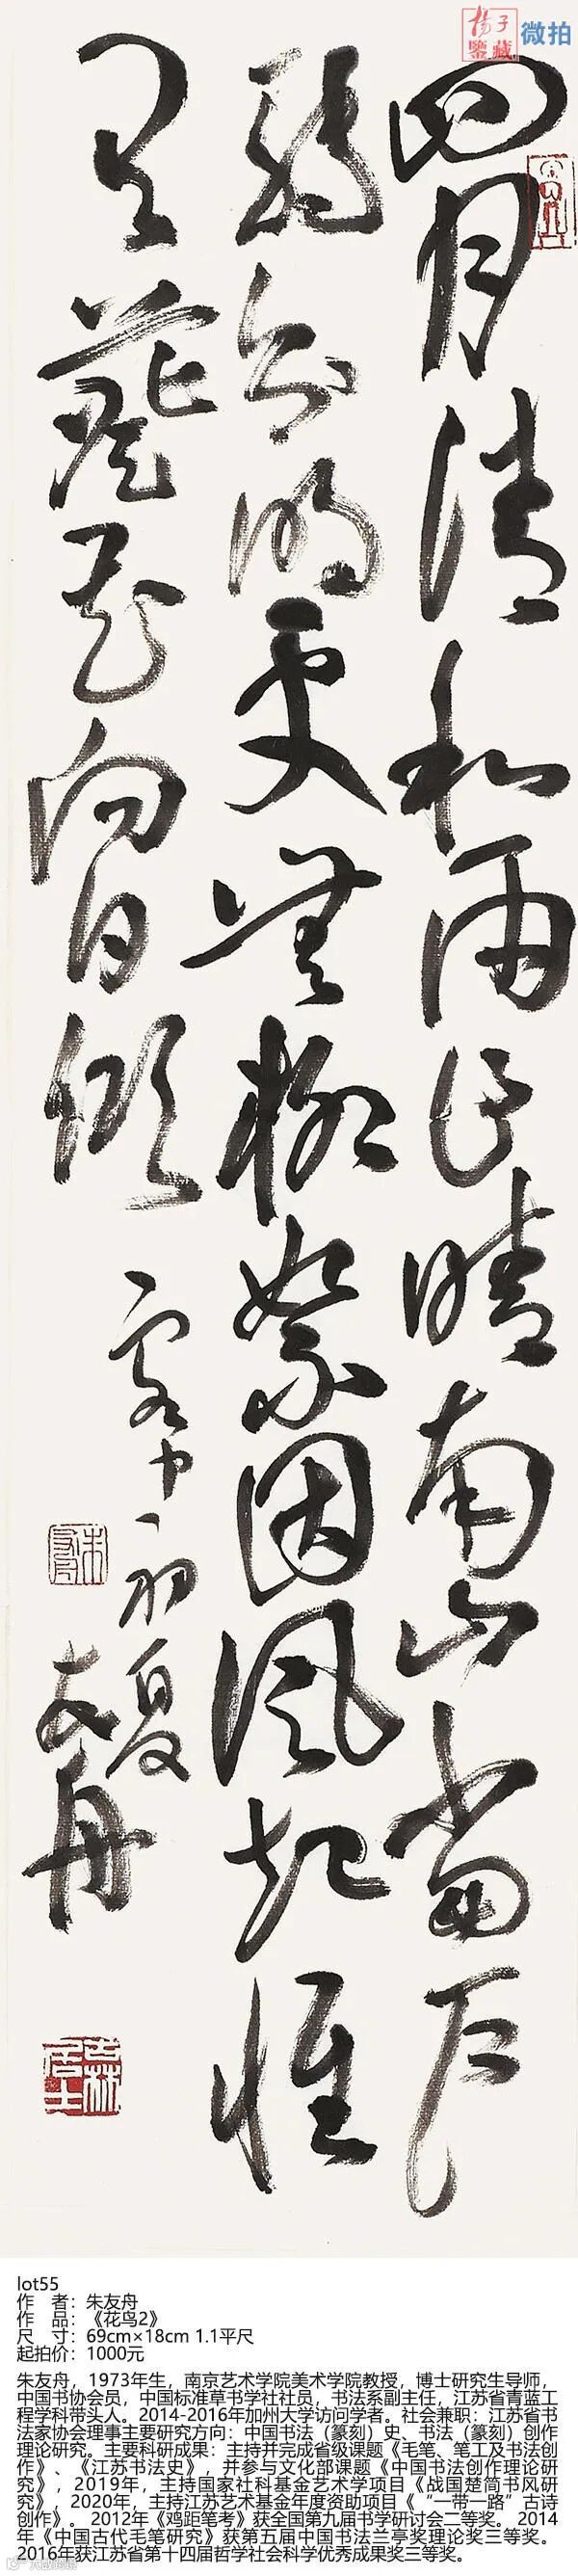 杨子
鉴藏
微拍
四月清和雨乍晴南山当户
转分明更无柳絮因风起惟
有葵花向日倾
客中初夏
友舟
lot55
作 者：朱友舟
作 品：《花鸟2》
尺 寸：69cm×18cm 1.1平尺
起拍价：1000元
朱友舟，1973年生，南京艺术学院美术学院教授，博士研究生导师，
中国书协会员，中国标准草书学社社员，书法系副主任，江苏省青蓝工
程学科带头人。2014-2016年加州大学访问学者。社会兼职：江苏省书
法家协会理事主要研究方向：中国书法（篆刻）史、书法（篆刻）创作
理论研究。主要科研成果：主持并完成省级课题《毛笔、笔工及书法创
作》、《江苏书法史》，并参与文化部课题《中国书法创作理论研
究》，2019年，主持国家社科基金艺术学项目《战国楚简书风研
究》，2020年，主持江苏艺术基金年度资助项目《“一带一路”古诗
创作》。 2012年《鸡距笔考》获全国第九届书学研讨会二等奖。 2014
年《中国古代毛笔研究》获第五届中国书法兰亭奖理论奖三等奖。
2016年获江苏省第十四届哲学社会科学优秀成果奖三等奖。